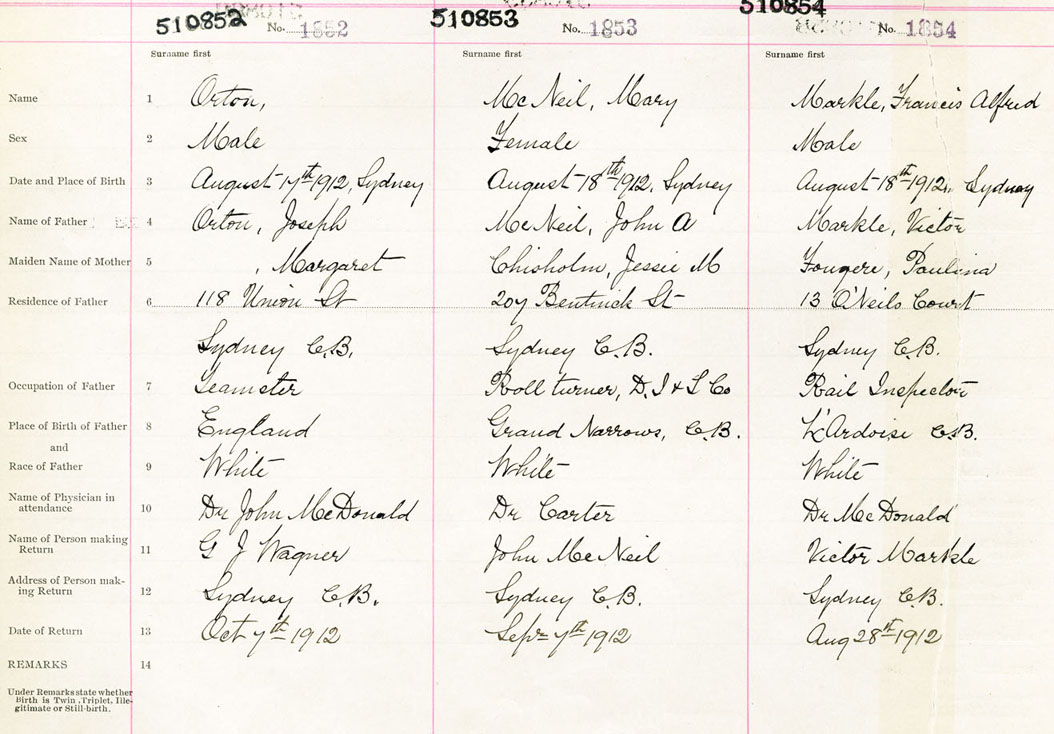 510852 No. 1852 510853 No. 1853 510854 No. 1854
Surname first Surname first Surname first
Name 1 Orton, McNeil, Mary Markle, Francis Alfred
Sex 2 Male Female Male
Date and Place of Birth 3 August 17th 1912, Sydney August 18th 1912, Sydney August 18th 1912, Sydney
Name of Father 4 Orton, Joseph McNeil, John A Markle, Victor
Maiden Name of Mother 5 , Margaret Chisholm, Jessie M Fougere, Paulina
Residence of Father 6 118 Union St 207 Bentinck St 13 O'Neils Court
Sydney C.B. Sydney C.B. Sydney C.B.
Occupation of Father 7 Teamster Roll turner, D. I & S Co Rail Inspector
Place of Birth of Father 8 England Grand Narrows, C.B. L'Ardoise C.B.
and
Race of Father 9 White White White
Name of Physician in
attendance 10 Dr John McDonald Dr Carter Dr McDonald
Name of Person making
Return 11 G J Wagner John McNeil Victor Markle
Address of Person mak-
ing Return 12 Sydney C.B. Sydney C.B. Sydney C.B.
Date of Return 13 Oct 7th 1912 Sepr 7th 1912 Aug 28th 1912
REMARKS 14
Under Remarks state whether
Birth is Twin, Triplet, Ille-
gitimate or Still-birth.